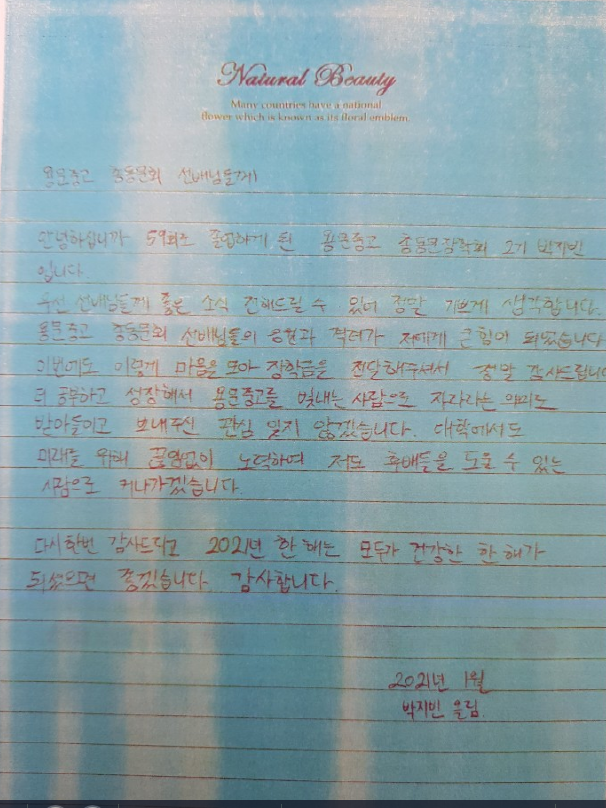 Natural Beauty
Many countries have a national
flower which is known as its floral emblem.
용문중고 총동문회 선배님들께
안녕하십니까 59회로 졸업하게 된 용문중고 총동문장학회 2기 박지빈
입니다.
우선 선배님들께 좋은 소식 전해드릴 수 있어 정말 기쁘게 생각합니다.
용문중고 총동문회 선배님들의 응원과 격려가 저에게 큰 힘이 되었습니다
이번에도 이렇게 마음을 모아 장학금을 전달해주셔서 정말 감사드립니다
더 공부하고 성장해서 용문중고를 빛내는 사람으로 자라라는 의미로
받아들이고 보내주신 관심 잊지 않겠습니다. 대학에서도
미래를 위해 끊임없이 노력하여 저도 후배들을 도울 수 있는
사람으로 커나가겠습니다.
다시한번 감사드리고 2021년 한 해는 모두가 건강한 한 해가
되셨으면 좋겠습니다. 감사합니다.
2021년 1월
박지빈 올림